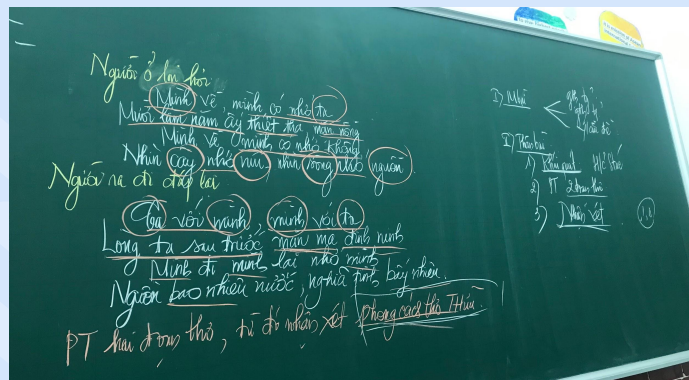 Người ở lại hỏi:
Mình về, mình có nhớ ta
Mười lăm năm ấy thiết tha mặn nồng
Mình về mình có nhớ không
Nhìn cây nhớ núi, nhìn sông nhớ nguồn
Người ra đi đáp lại
Ta với mình, mình với ta
Lòng ta sau trước mặn mà đinh ninh
Mình đi mình lại nhớ mình
Nguồn bao nhiêu nước, nghĩa tình bấy nhiêu.
PT hai đoạn thơ, từ đó nhận xét phong cách thơ T Hữu.
I) Mbài
II) Thân bài
1) Khái quát
2) PT 2 đoạn thơ
3) Nhận xét